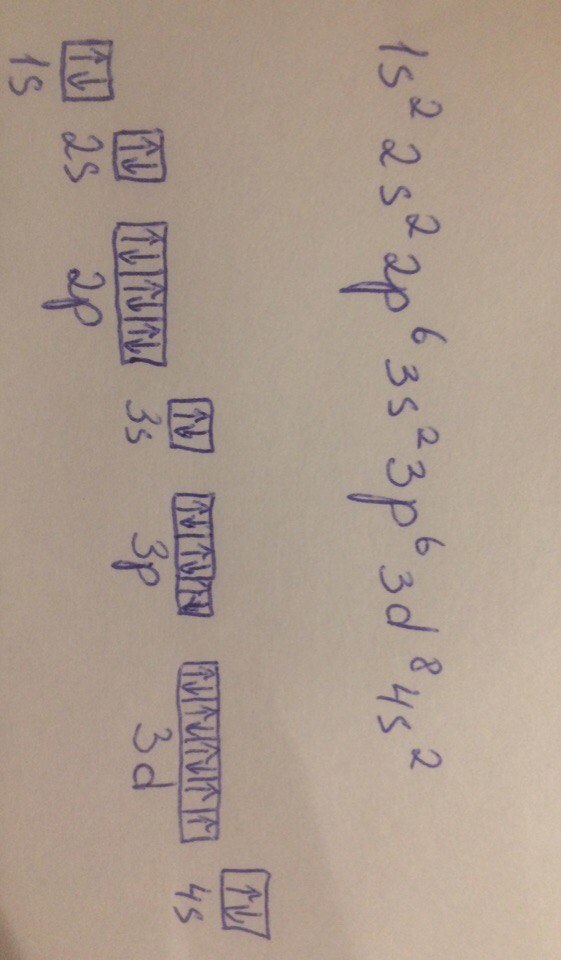 1s² 2s² 2p⁶ 3s² 3p⁶ 3d⁸ 4s²
↑↓ ↑↓ ↑↓ ↑↓ ↑↓ ↑↓ ↑↓ ↑↓ ↑↓ ↑↓ ↑↓ ↑↓ ↑ ↑ ↑↓
1s 2s 2p 3s 3p 3d 4s